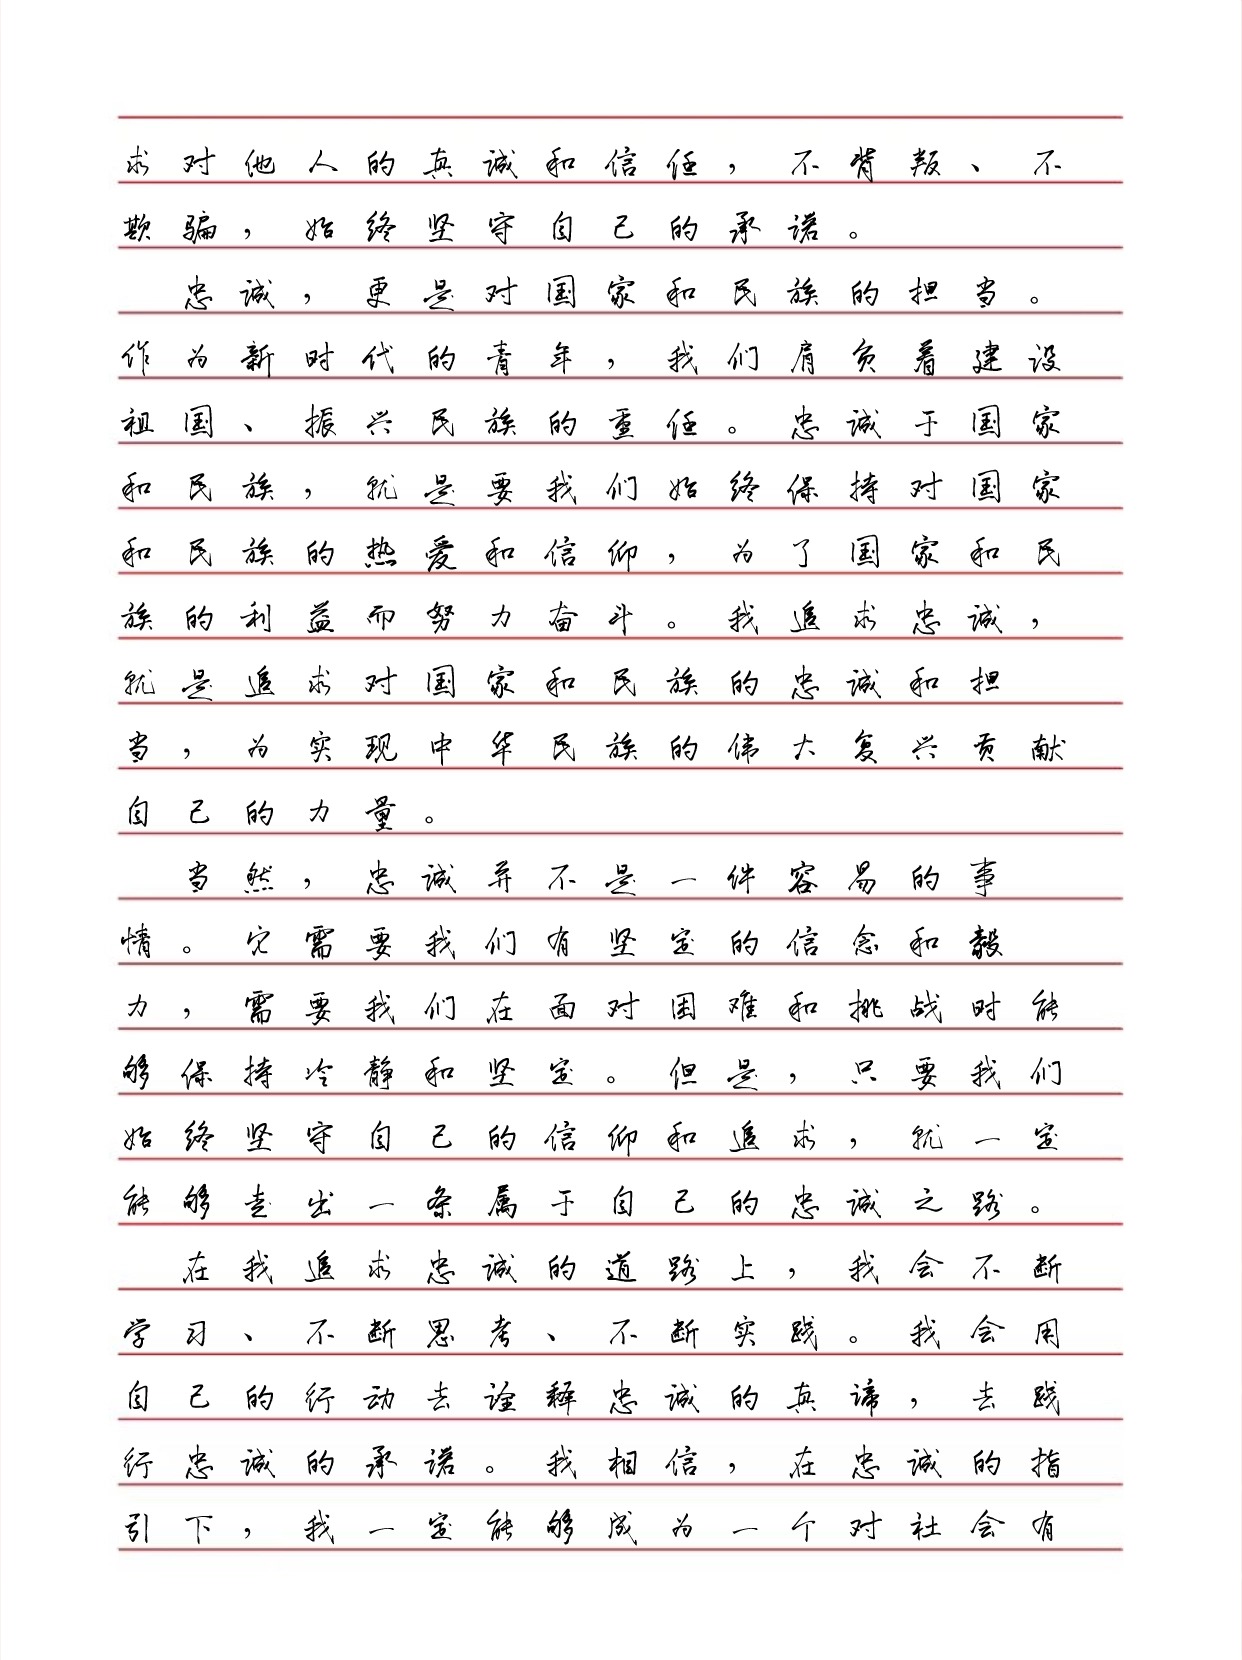 求对他人的真诚和信任，不背叛、不
欺骗，始终坚守自己的承诺。
忠诚，更是对国家和民族的担当。
作为新时代的青年，我们肩负着建设
祖国、振兴民族的重任。忠诚于国家
和民族，就是要我们始终保持对国家
和民族的热爱和信仰，为了国家和民
族的利益而努力奋斗。我追求忠诚，
就是追求对国家和民族的忠诚和担
当，为实现中华民族的伟大复兴贡献
自己的力量。
当然，忠诚并不是一件容易的事
情。它需要我们有坚定的信念和毅
力，需要我们在面对困难和挑战时能
够保持冷静和坚定。但是，只要我们
始终坚守自己的信仰和追求，就一定
能够走出一条属于自己的忠诚之路。
在我追求忠诚的道路上，我会不断
学习、不断思考、不断实践。我会用
自己的行动去诠释忠诚的真谛，去践
行忠诚的承诺。我相信，在忠诚的指
引下，我一定能够成为一个对社会有